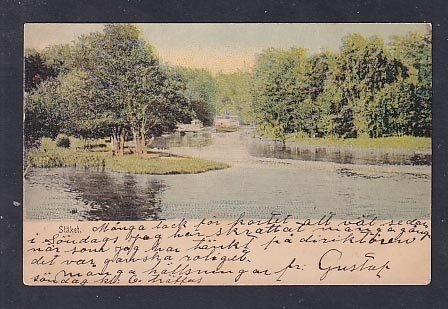 Stäket.
Många tack för kortet allt väl sedan
i Söndags jag har skrattat många gån
när som jag har tänkt på direktören
det var ganska roligt
många hälsningar fr: Gustaf
söndag kl. 6 träffas